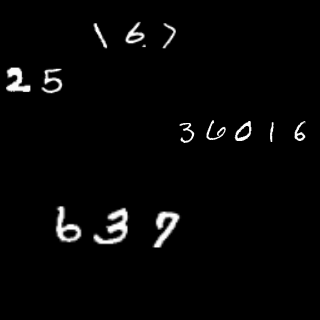 167
25
36016
637